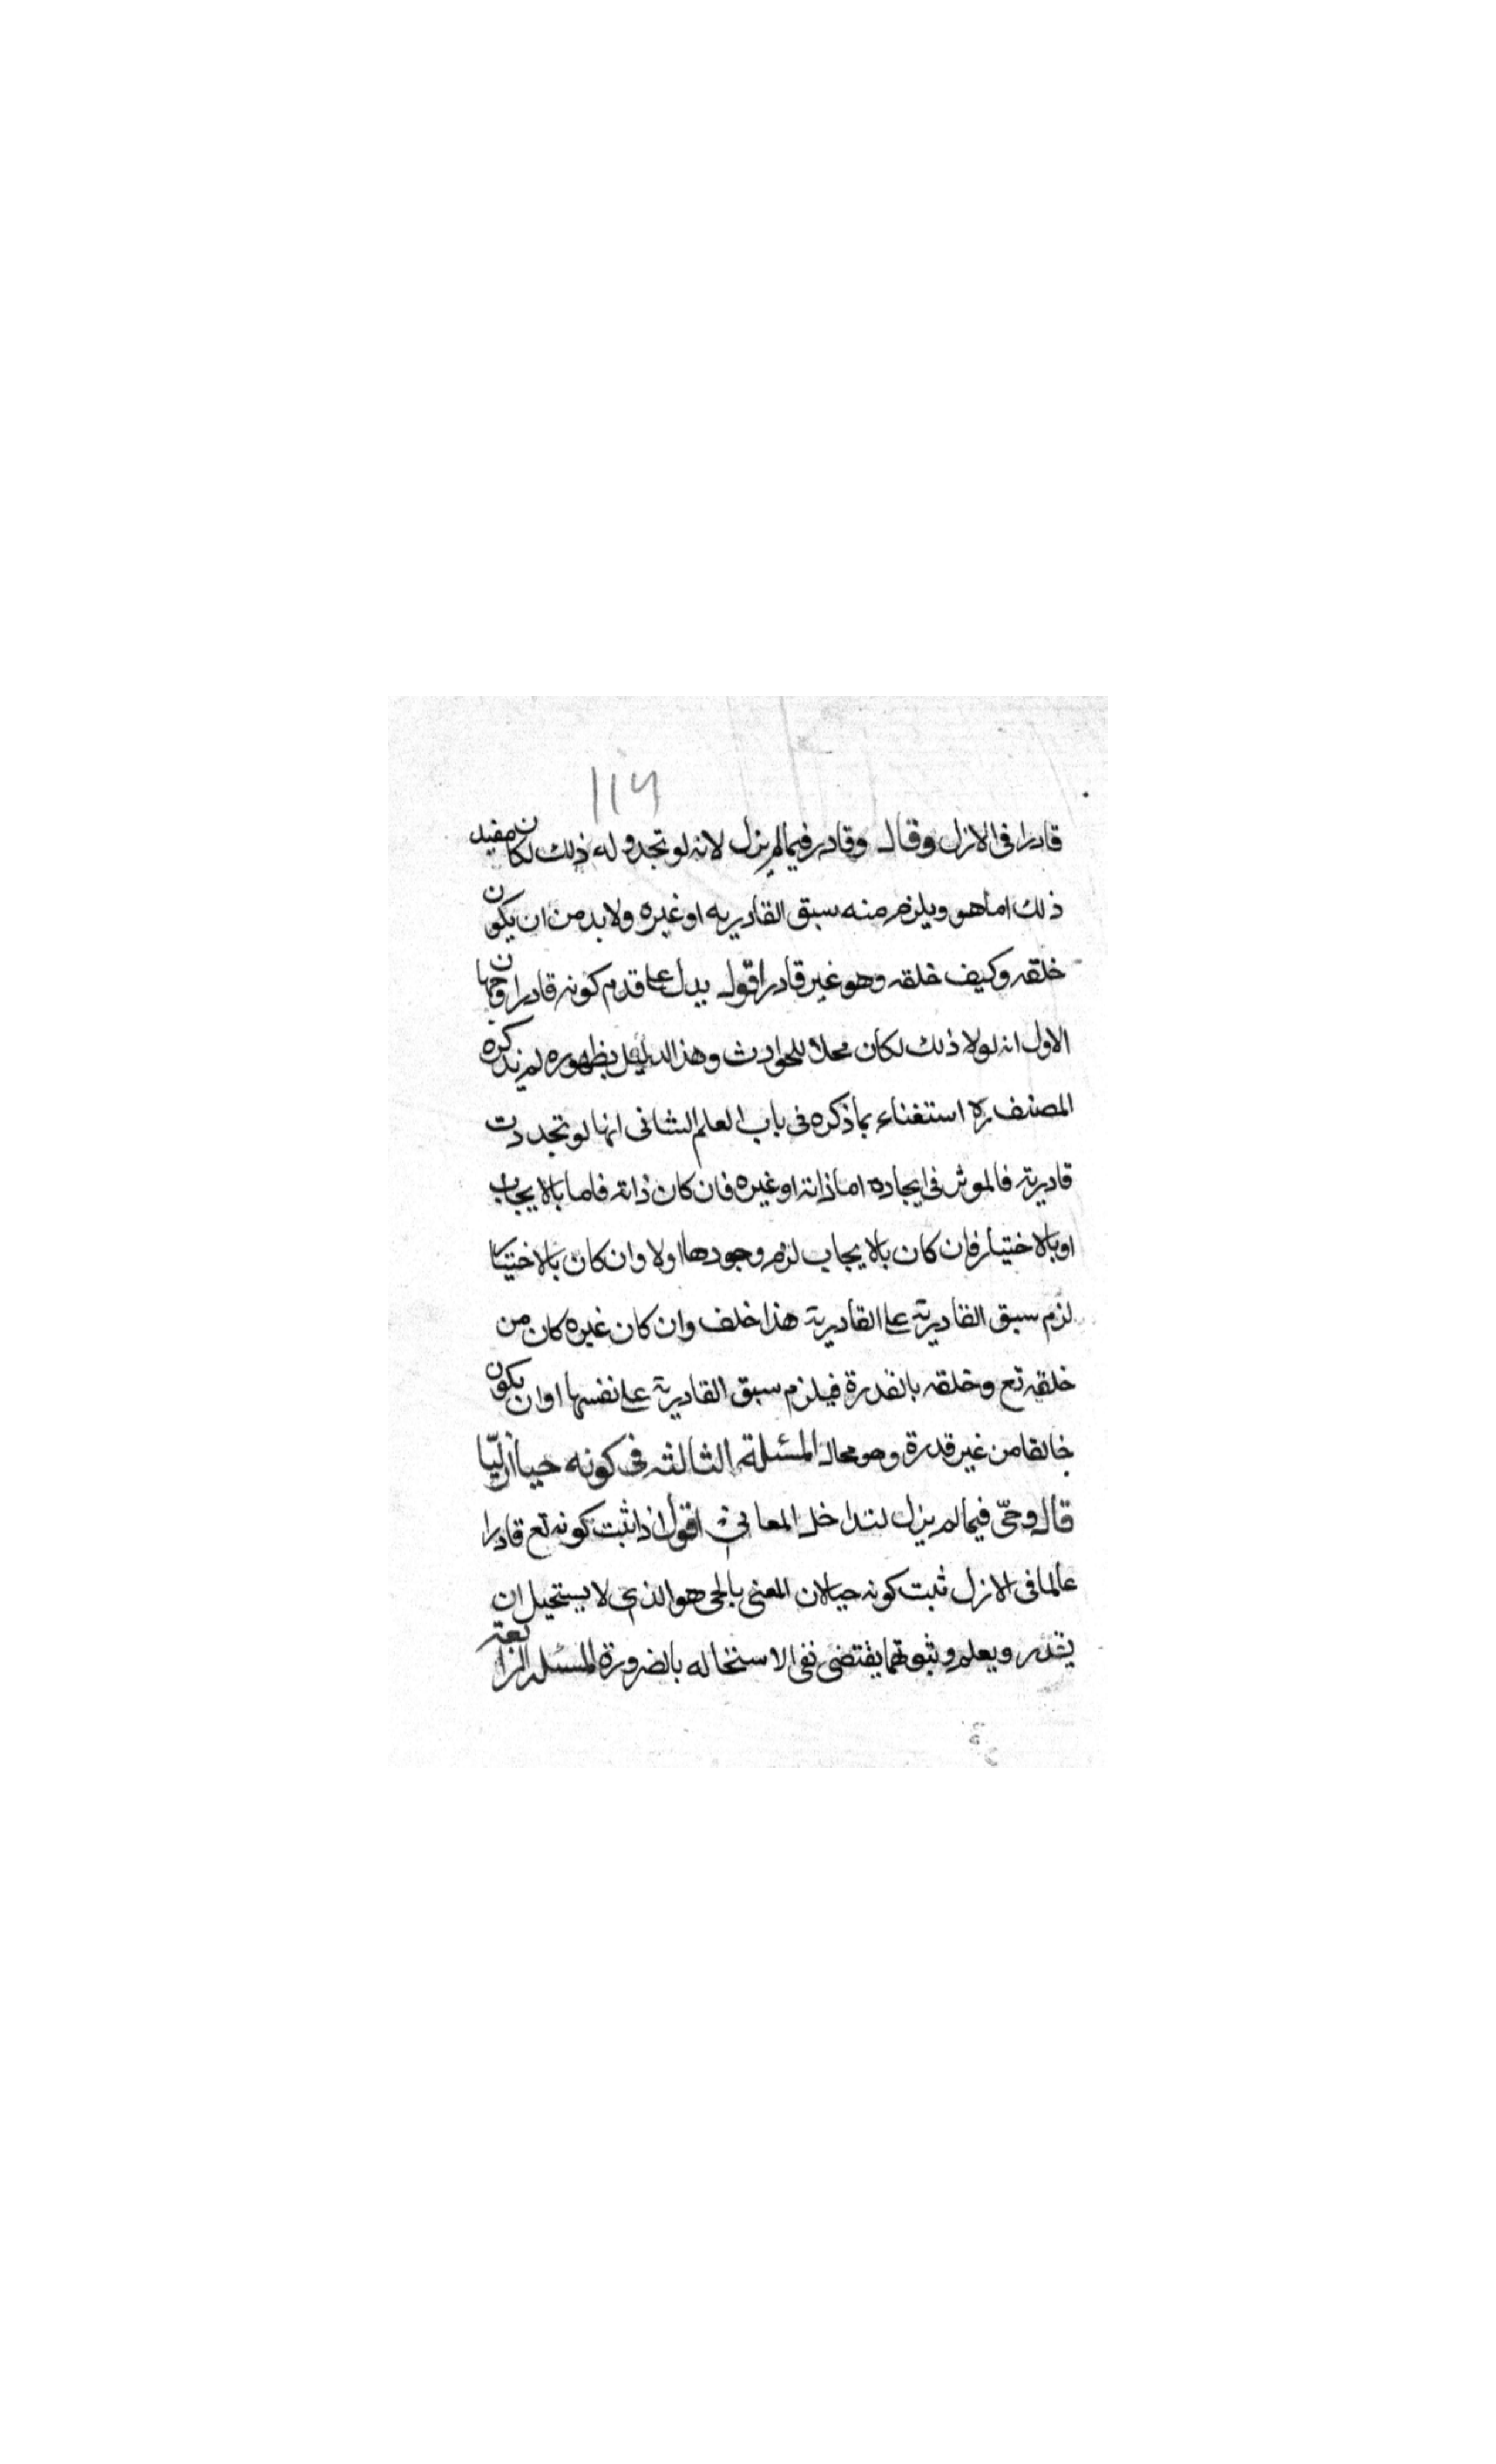 ۱۱۶
قادرا فى الازل وقال وقادر فيما لم يزل لانه لو تجدد له ذلك لكان مفيد
ذلك اما هو ويلزم منه سبق القادريه او غيره ولا بد من ان يكون
خلقه وكيف خلقه وهو غير قادر اقول يدل على قدم كونه قادرا وجهان
الاول انه لولا ذلك لكان محلا للحوادث وهذا الدليل بظهوره لم يذكره
المصنف ره استغناء بما ذكره فى باب العلم الثانى انها لو تجددت
قادريته فالموثر فى ايجاده اما ذاته او غيره فان كان ذاته فاما بالايجاب
او بالاختيار فان كان بالايجاب لزم وجودها اولا وان كان بالاختيا
لزم سبق القادرية على القادرية هذا خلف وان كان غيره كان من
خلقه تع وخلقه بالقدرة فيلزم سبق القادرية على نفسها او ان يكون
خالقا من غير قدرة وهو محال المسئلة الثالثه فى كونه حيا ازليّا
قال وحىّ فيما لم يزل لتداخل المعانى اقول اذا ثبت كونه تع قادرا
عالما فى الازل ثبت كونه حيا لان المعنى بالحى هو الذى لا يستحيل ان
يقدر ويعلم وثبوتهما يقتضى نفى الاستحاله بالضرورة المسئله الرابعة